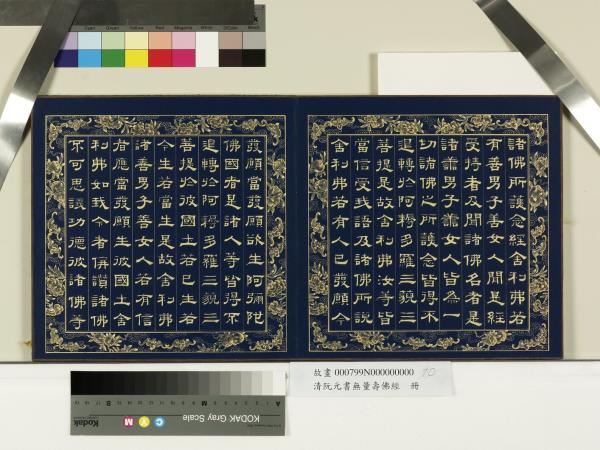 諸佛所護念經舍利弗若
有善男子善女人聞是經
受持者及聞諸佛名者是
諸善男子善女人皆為一
切諸佛之所護念皆得不
退轉於阿耨多羅三藐三
菩提是故舍利弗汝等皆
當信受我語及諸佛所說
舍利弗若有人已發願今
發願當發願欲生阿彌陀
佛國者是諸人等皆得不
退轉於阿耨多羅三藐三
菩提於彼國土若已生若
今生若當生是故舍利弗
諸善男子善女人若有信
者應當發願生彼國土舍
利弗如我今者稱讚諸佛
不可思議功德彼諸佛等
故畫 000799N000000000 10
清阮元書無量壽佛經 冊
Kodak
C Y M
KODAK Gray Scale